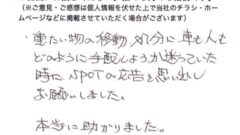 (※ご意見・ご感想は個人情報を伏せた上で当社のチラシ・ホー
ムページなどに掲載させていただく場合がございます)
重たい物の移動、処分に、車も人も
どのように手配しようか迷っていた
時に、SPOTの広告を思い出し
お願いしました。
本当に助かりました。